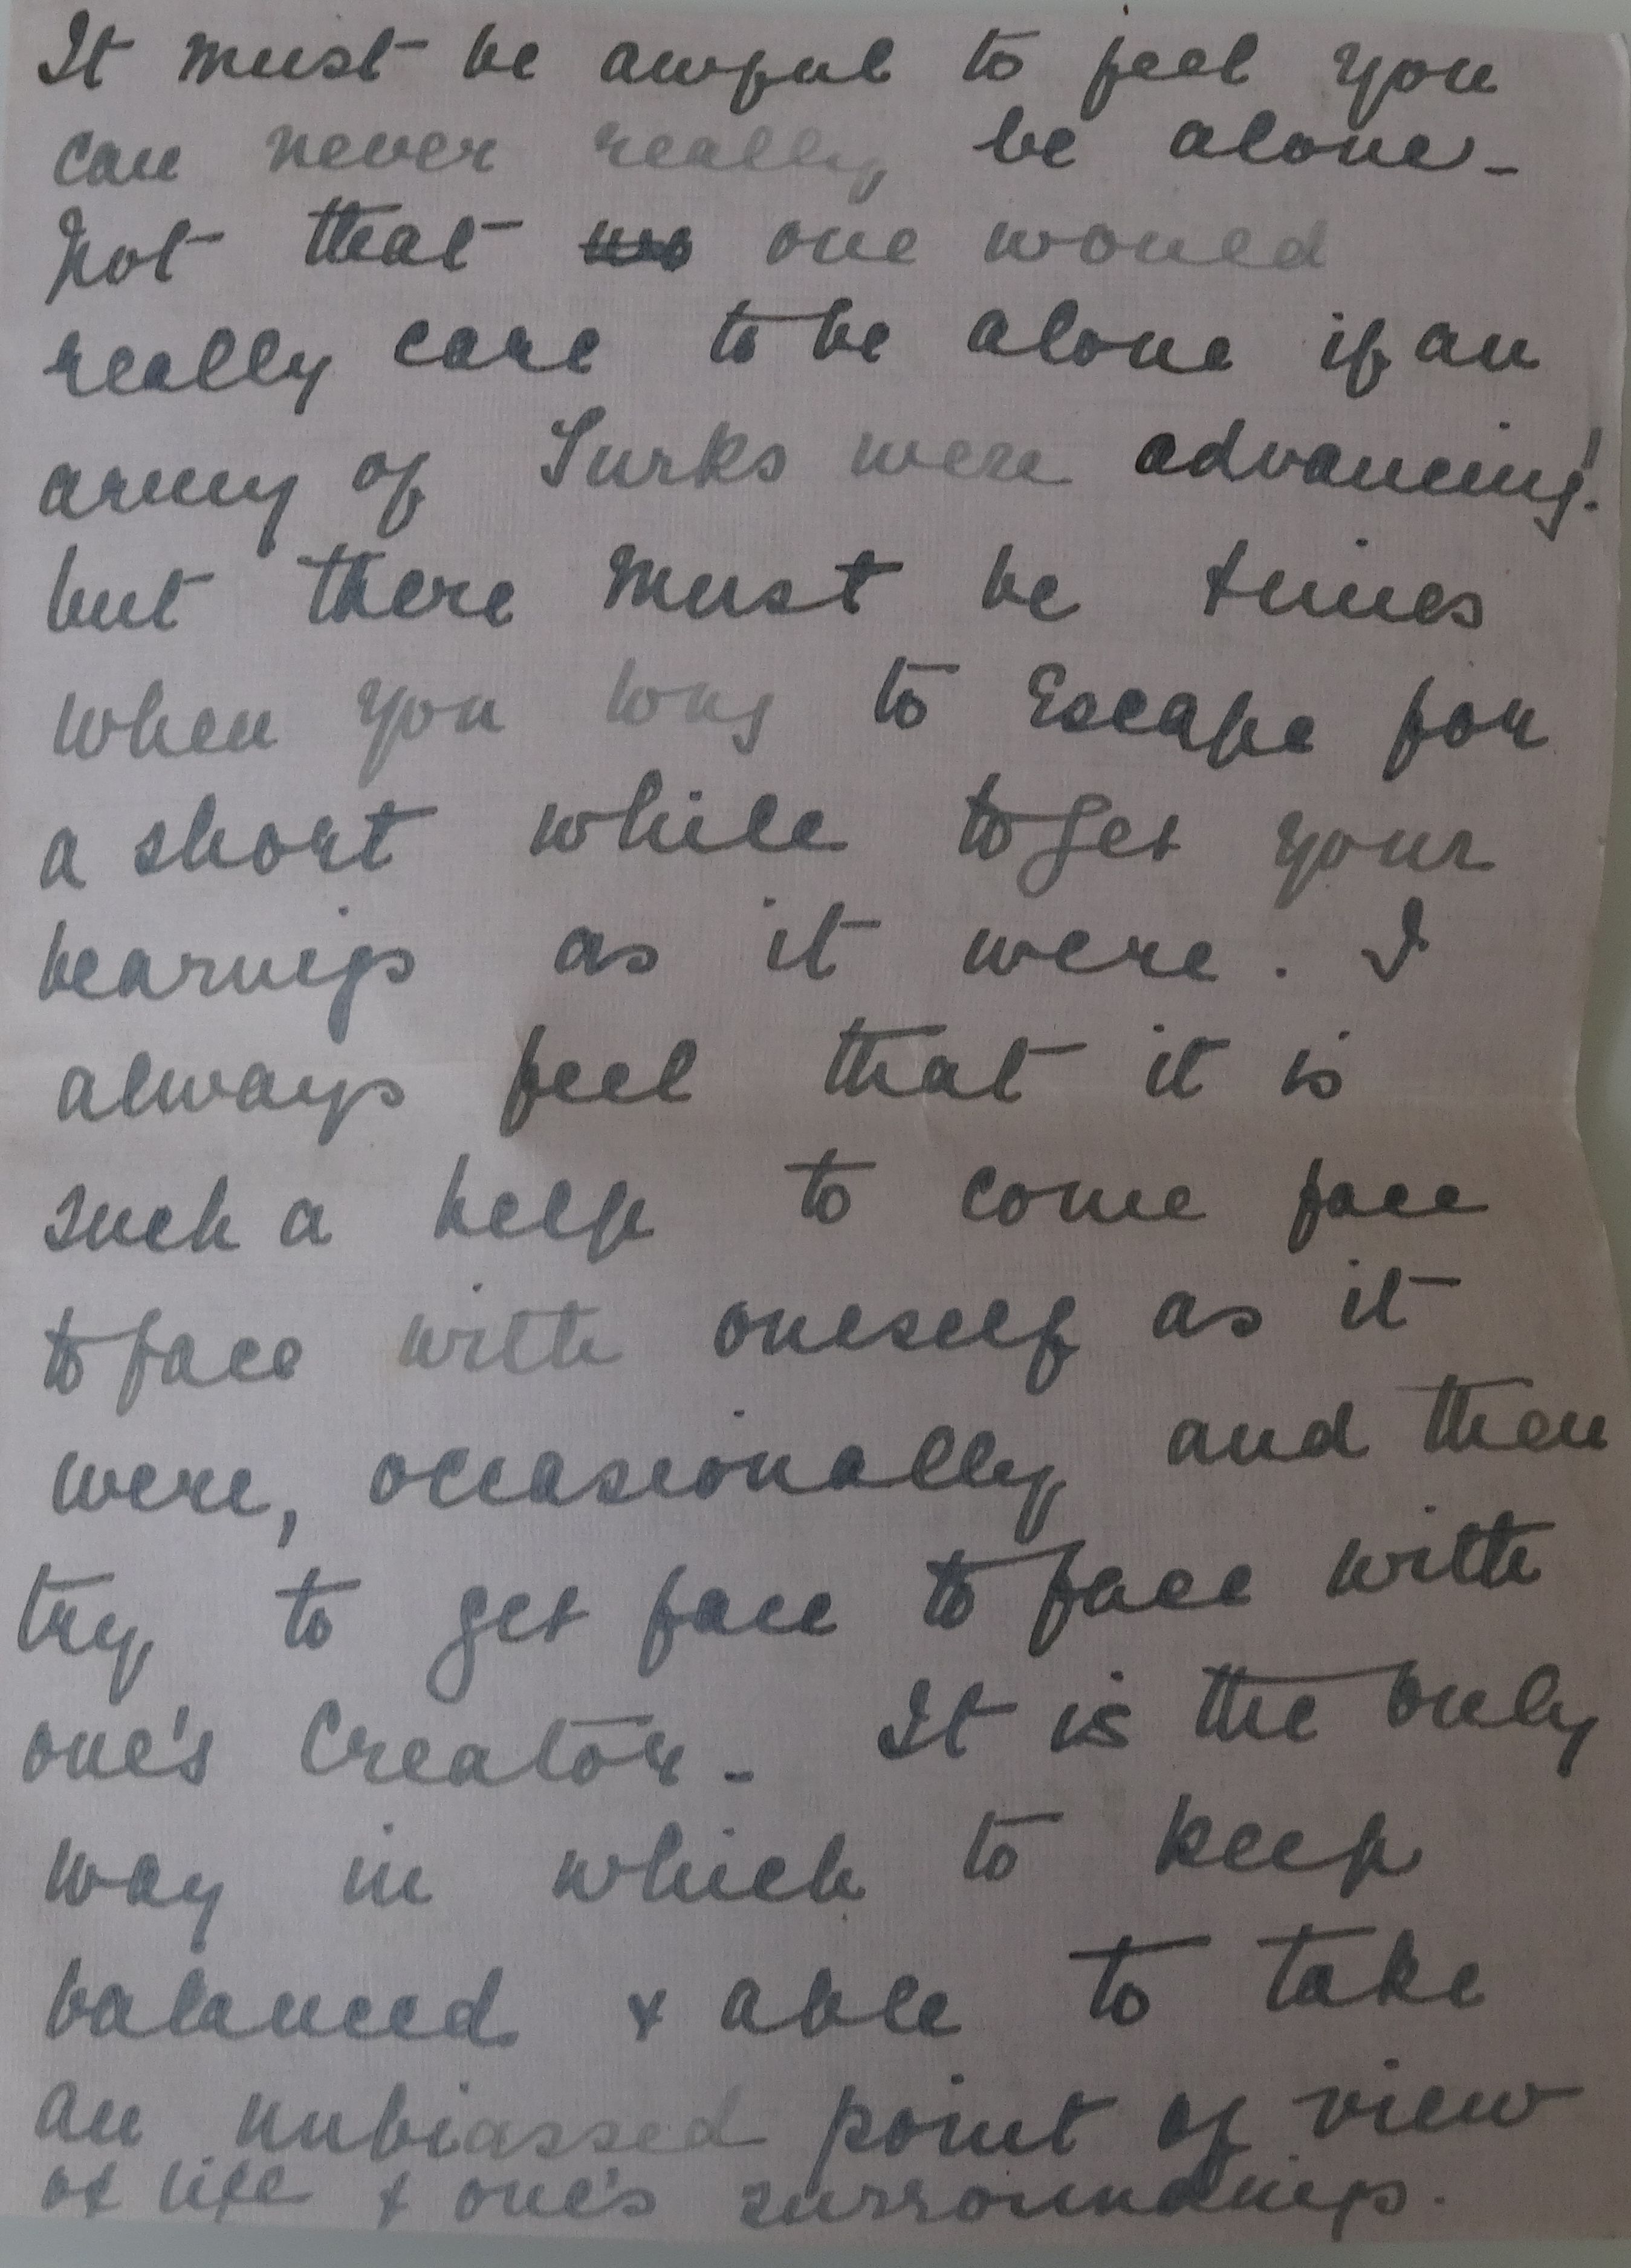 It must be awful to feel you
can never really be alone -
Not that one would
really care to be alone if an
army of Turks were advancing!
but there must be times
when you long to Escape for
a short while to get your
bearings as it were. I
always feel that it is
such a help to come face
to face with oneself as it
were, occasionally and then
try to get face to face with
one's Creator - It is the only
way in which to keep
balanced & able to take
an unbiassed point of view
of life & one's surroundings.